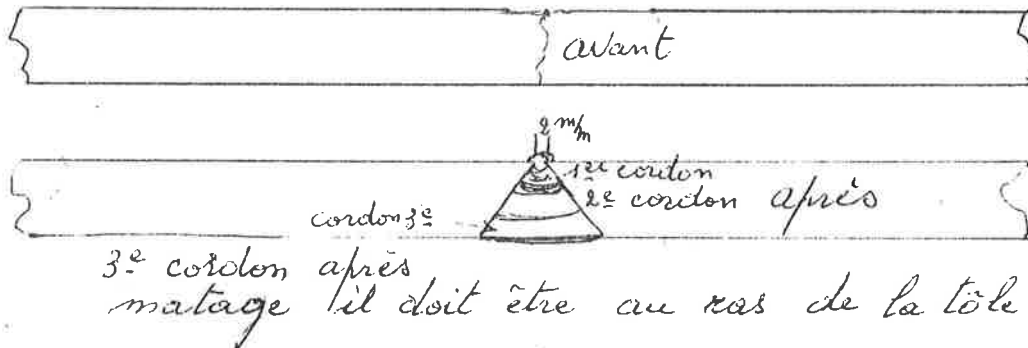 avant
2 m/m
1er cordon
2e cordon après
cordon 3e
3e cordon après
matage il doit être au ras de la tôle